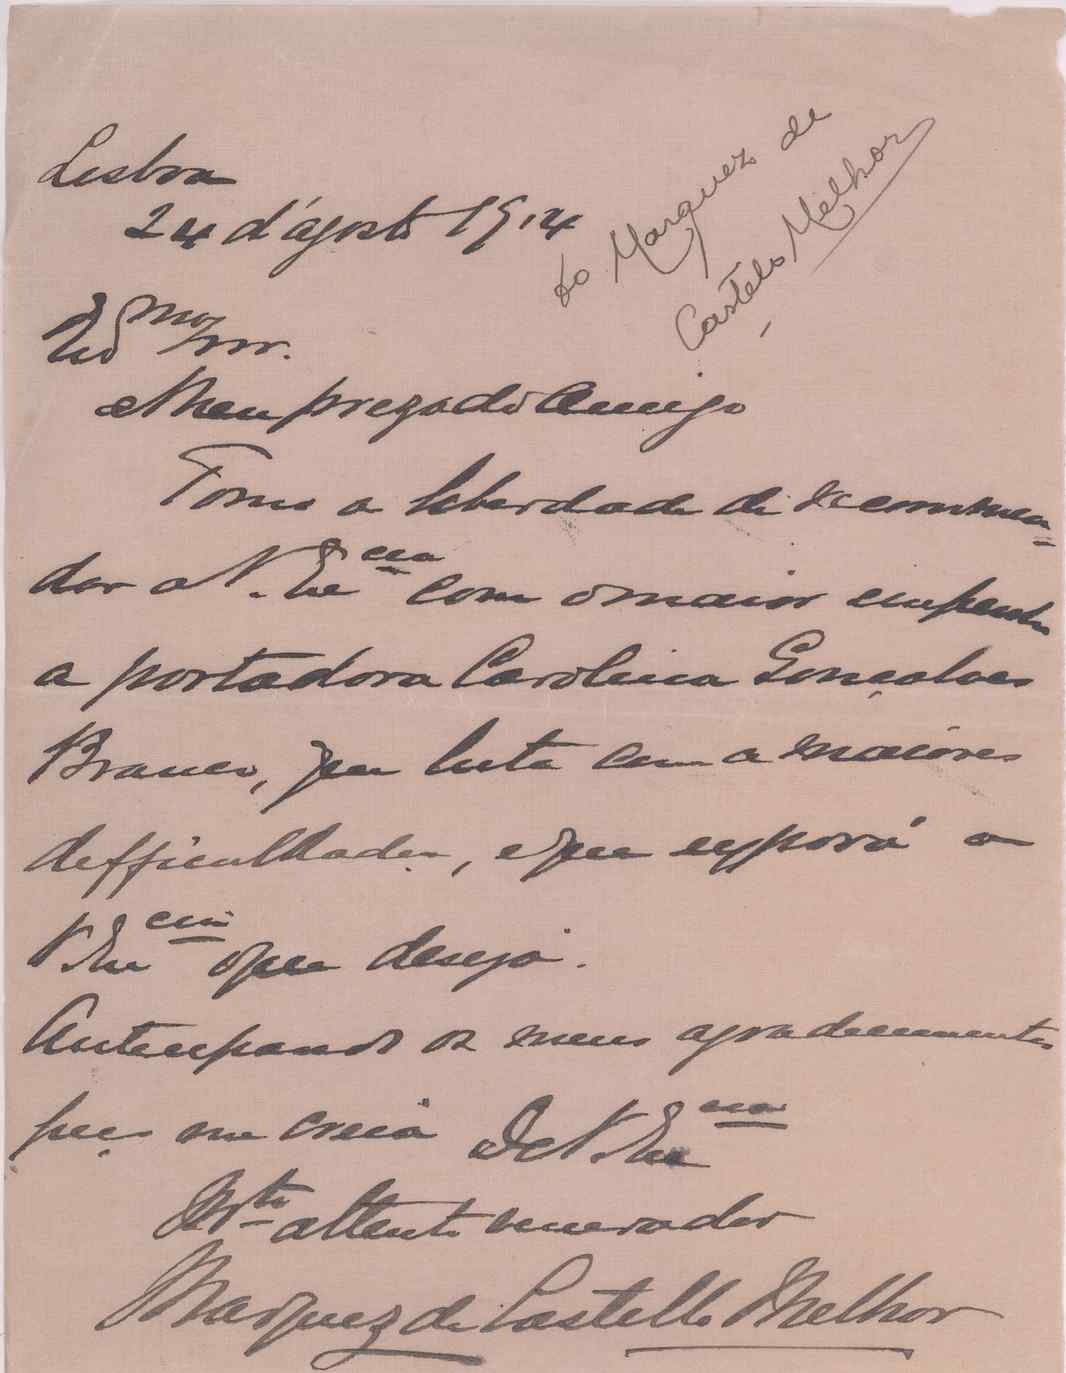 Lisboa
24 d'agosto 1914
do Marquez de
Castelo Melhor
Exmo Snr.
Meu prezado Amigo
Tomo a liberdade de recommen-
dar a V. Excia com o maior empenho
a portadora Carolina Gonçalves
Branco, que luta com as maiores
difficuldades, e que exporá a
V. Excia o que deseja.
Antecipando os meus agradecimentos
peço me creia De V. Excia
Mto attento venerador
Marquez de Castello Melhor